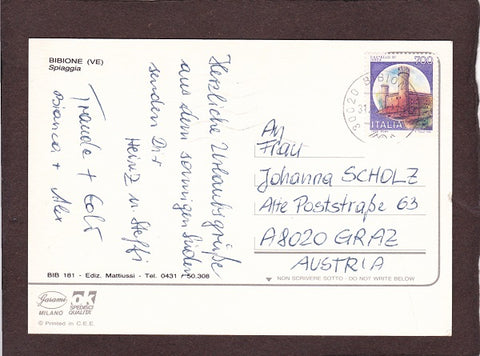 BIBIONE (VE)
Spiaggia
Herzliche Urlaubsgrüße
aus dem sonnigen Süden
senden Dir
Heinz u. Steffi
Traude +
Bianca + Alex
700
ITALIA
30020 BIBIO
31.
An
Frau
Johanna SCHOLZ
Alte Poststraße 63
A8020 GRAZ
AUSTRIA
BIB 181 - Ediz. Mattiussi - Tel. 0431 / 50.308
NON SCRIVERE SOTTO - DO NOT WRITE BELOW
Garami
MILANO
ok
SPEDISCI
QUALITÀ
© Printed in C.E.E.